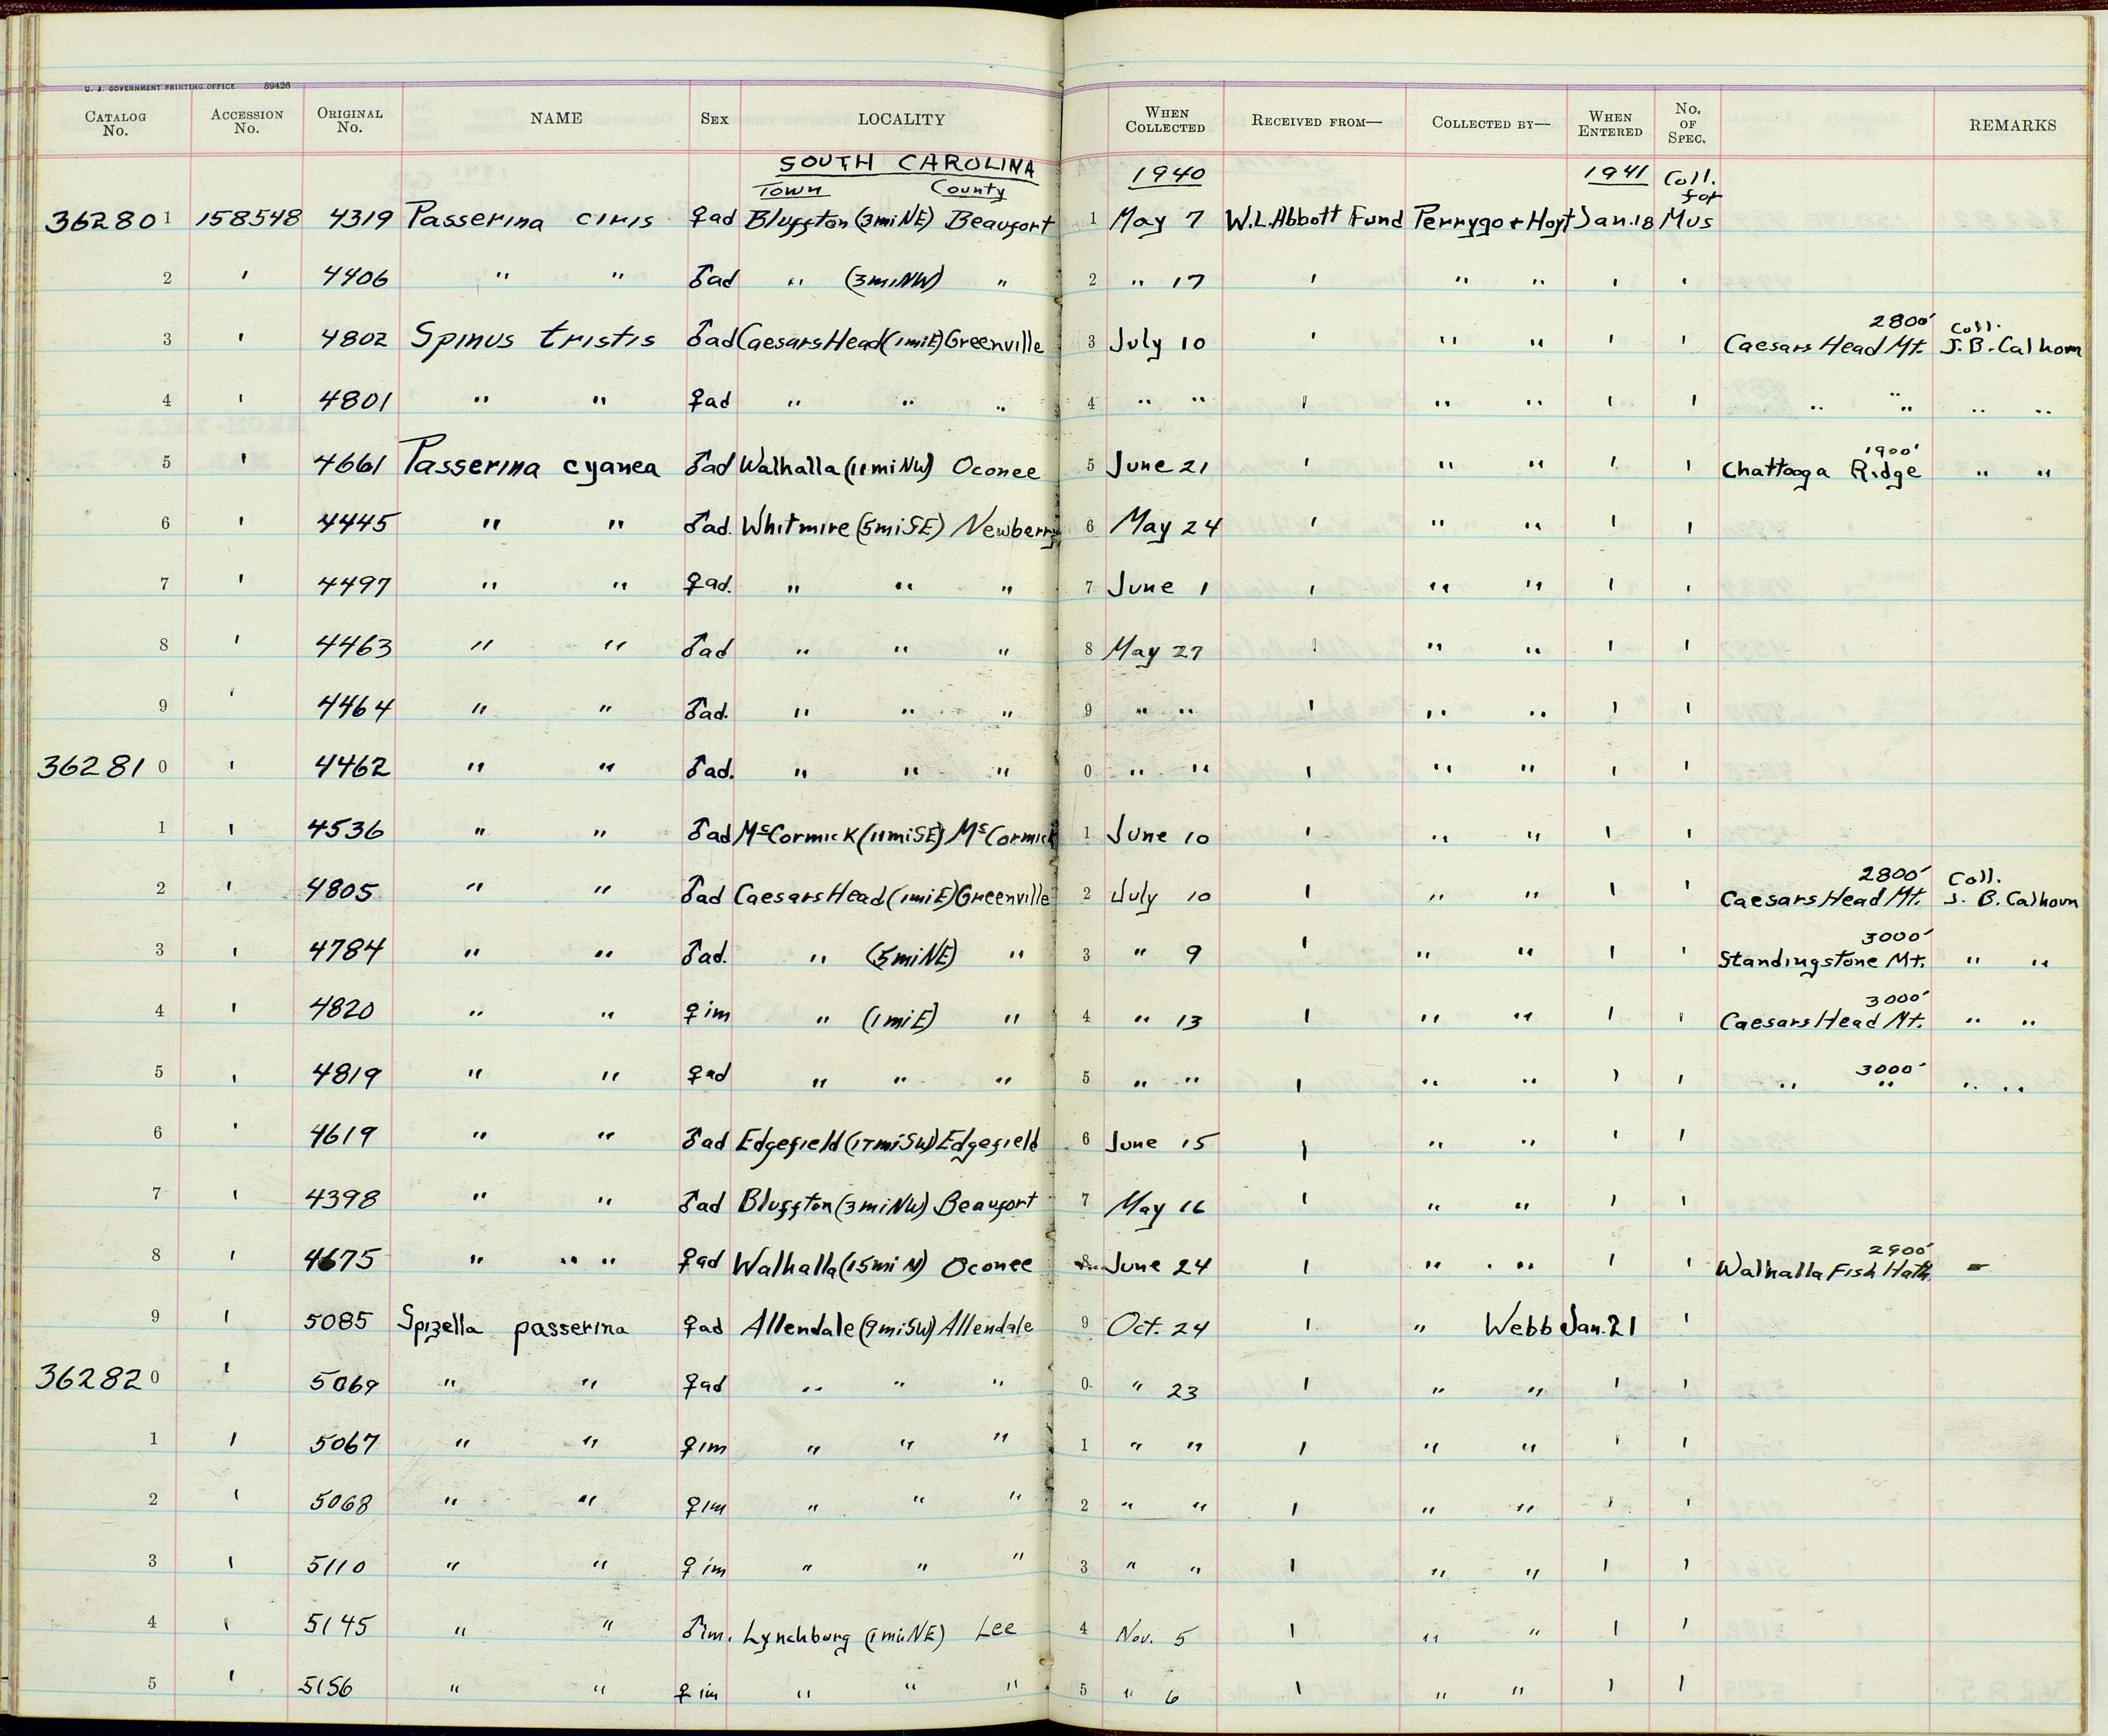 U. S. GOVERNMENT PRINTING OFFICE 89426
CATALOG No. ACCESSION No. ORIGINAL No. NAME SEX LOCALITY WHEN COLLECTED RECEIVED FROM— COLLECTED BY— WHEN ENTERED No. OF SPEC. REMARKS
SOUTH CAROLINA 1940 1941 Coll.
Town County for
36280 1 158548 4319 Passerina ciris ♀ad Bluffton (3miNE) Beaufort 1 May 7 W.L. Abbott Fund Perrygo + Hoyt Jan. 18 Mus
2 ' 4406 " " ♂ad " (3miNW) " 2 " 17 ' " " ' '
2800' Coll.
3 ' 4802 Spinus tristis ♂ad Caesars Head (1miE) Greenville 3 July 10 ' " " ' ' Caesars Head Mt. J. B. Calhoun
4 ' 4801 " " ♀ad " " " 4 " " ' " " ' ' " " " "
1900'
5 ' 4661 Passerina cyanea ♂ad Walhalla (11miNW) Oconee 5 June 21 ' " " ' ' Chattooga Ridge " "
6 ' 4445 " " ♂ad. Whitmire (5miSE) Newberry 6 May 24 ' " " ' '
7 ' 4497 " " ♀ad. " " " 7 June 1 ' " " ' '
8 ' 4463 " " ♂ad " " " 8 May 27 ' " " ' '
9 ' 4464 " " ♂ad. " " " 9 " " ' " " ' '
36281 0 ' 4462 " " ♂ad. " " " 0 " " ' " " ' '
1 ' 4536 " " ♂ad McCormick (11miSE) McCormick 1 June 10 ' " " ' '
2800' Coll.
2 ' 4805 " " ♂ad Caesars Head (1miE) Greenville 2 July 10 ' " " ' ' Caesars Head Mt. J. B. Calhoun
3000'
3 ' 4784 " " ♂ad. " (5miNE) " 3 " 9 ' " " ' ' Standingstone Mt. " "
3000'
4 ' 4820 " " ♀im " (1miE) " 4 " 13 ' " " ' ' Caesars Head Mt. " "
3000'
5 ' 4819 " " ♀ad " " " 5 " " ' " " ' ' " " " "
6 ' 4619 " " ♂ad Edgefield (17miSW) Edgefield 6 June 15 ' " " ' '
7 ' 4398 " " ♂ad Bluffton (3miNW) Beaufort 7 May 16 ' " " ' '
2900'
8 ' 4675 " " " ♀ad Walhalla (15miN) Oconee 8 June 24 ' " " ' ' Walhalla Fish Hatch. -
9 ' 5085 Spizella passerina ♀ad Allendale (9miSW) Allendale 9 Oct. 24 ' " Webb Jan. 21 '
36282 0 ' 5069 " " ♀ad " " " 0 " 23 ' " " ' '
1 ' 5067 " " ♀im " " " 1 " " ' " " ' '
2 ' 5068 " " ♀im " " " 2 " " ' " " ' '
3 ' 5110 " " ♀im " " " 3 " " ' " " ' '
4 ' 5145 " " ♂im. Lynchburg (1miNE) Lee 4 Nov. 5 ' " " ' '
5 ' 5156 " " ♀im " " " 5 " 6 ' " " ' '